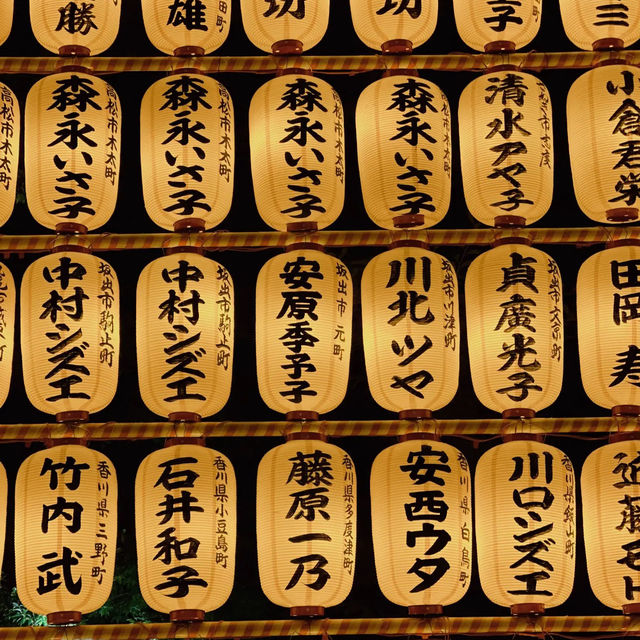 勝
雄
功
功
子
三
高松市木太町
森永いさ子
高松市木太町
森永いさ子
高松市木太町
森永いさ子
森永いさ子
清水アヤ子
小倉君栄
坂出市駒止町
中村シズエ
坂出市駒止町
中村シズエ
坂出市元町
安原季子
坂出市川津町
川北ツヤ
坂出市文京町
貞廣光子
田岡寿
香川県三野町
竹内武
香川県小豆島町
石井和子
香川県多度津町
藤原一乃
香川県白鳥町
安西ウタ
香川県飯山町
川口シズエ
近藤モ